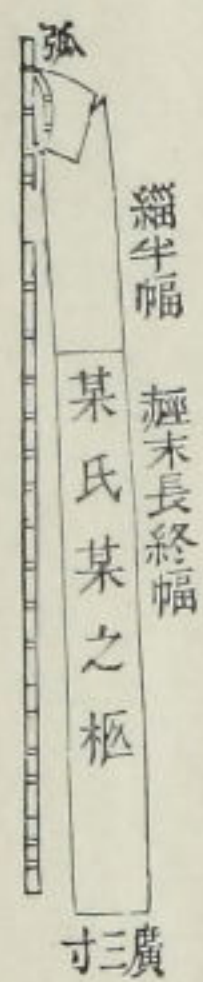 弧
緇半幅
䞓末長終幅
某氏某之柩
廣三寸